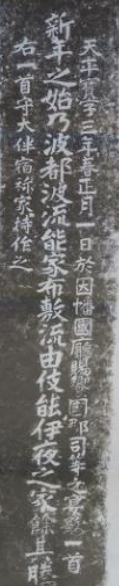 天平寳字三年春正月一日於因幡國廳賜饗國郡司等之宴歌一首
新年之始乃波都波流能家布敷流由伎能伊夜之家餘其騰
右一首守大伴宿祢家持作之